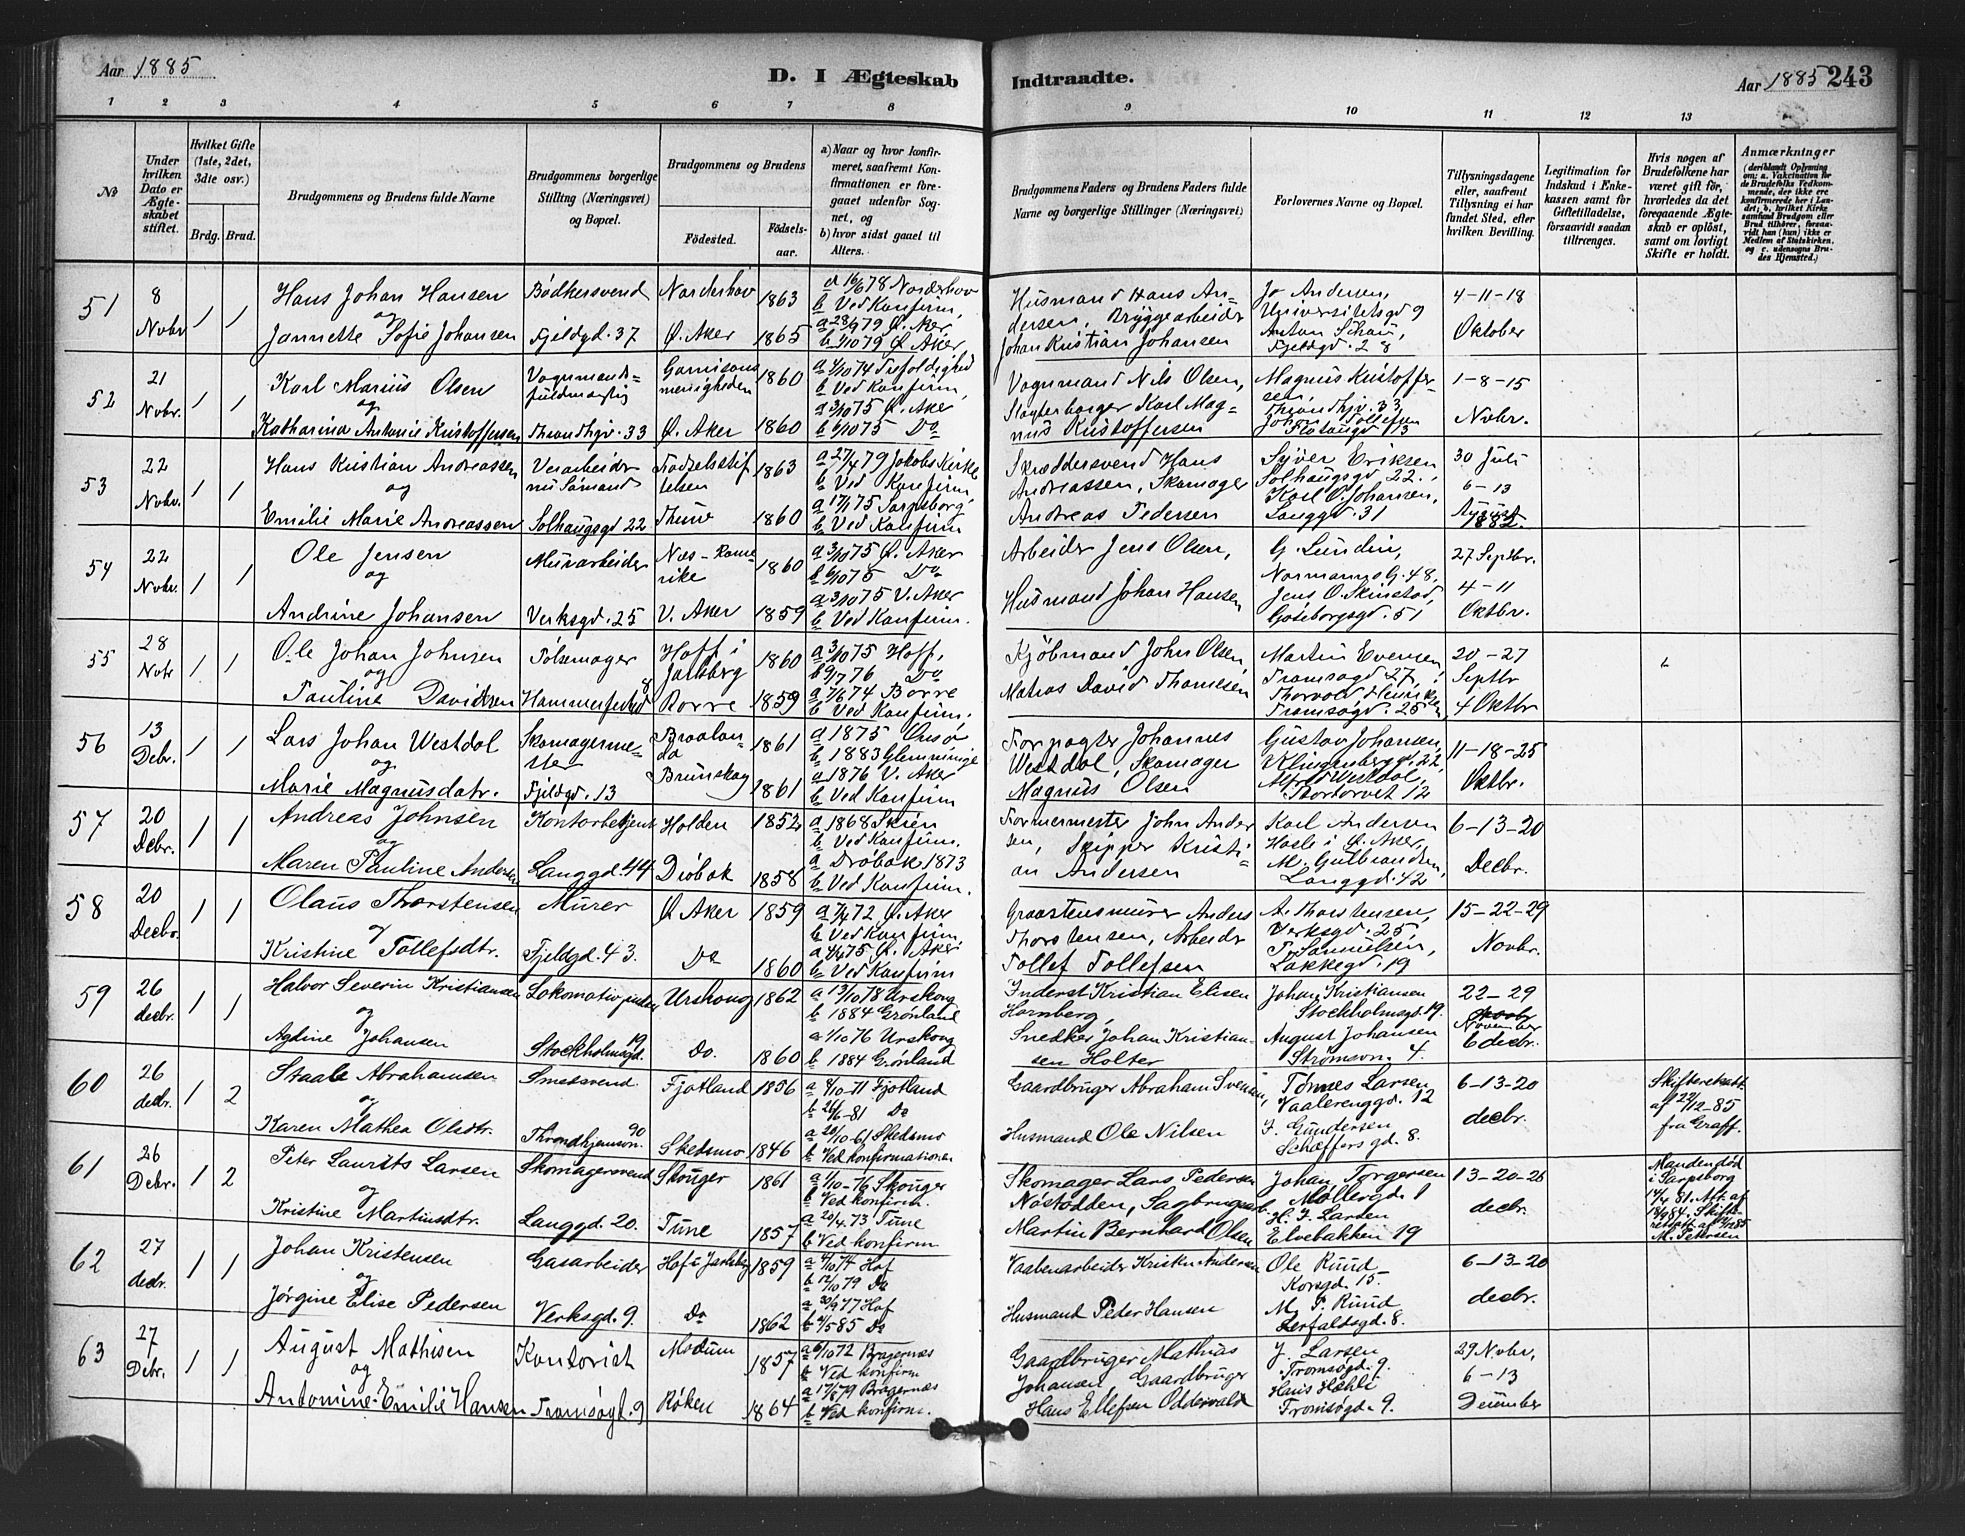 Aar 1885
D. I Ægteskab Indtraadte.
Aar 1885 243
1 2 3 4 5 6 7 8 9 10 11 12 13
No
Under hvilken Dato er Ægteskabet stiftet.
Hvilket Gifte (1ste, 2det, 3die osv.)
Brdg. Brud.
Brudgommens og Brudens fulde Navne
Brudgommens borgerlige Stilling (Næringsvei) og Bopæl.
Brudgommens og Brudens
Fødested. Fødselsaar.
a) Naar og hvor konfirmeret, saafremt Konfirmationen er foregaaet udenfor Sognet, og
b) hvor sidst gaaet til Alters.
Brudgommens Faders og Brudens Faders fulde Navne og borgerlige Stillinger (Næringsvei)
Forlovernes Navne og Bopæl.
Tillysningsdagene eller, saafremt Tillysning ei har fundet Sted, efter hvilken Bevilling.
Legitimation for Indskud i Enkekassen samt for Giftetilladelse, forsaavidt saadan tiltrænges.
Hvis nogen af Brudefolkene har været gift før, hvorledes da det foregaaende Ægteskab er opløst, samt om lovligt Skifte er holdt.
Anmærkninger
51 8 Novbr 1 1
Hans Johan Hansen Bødkersvend Norderhov 1863 a 16/6 78 Norderhov b Ved Konfirm.
og
Jannette Sofie Johansen Fjeldgd. 37 Ø. Aker 1865 a 28/9 79 Ø. Aker b 5/10 79 Ø. Aker
Husmand Hans Andersen, Bryggearbeider Johan Kristian Johansen
Jo Andersen, Universitetsgd 9 Anton Fjeldgd. 28
4-11-18 Oktober
52 21 Novbr. 1 1
Karl Marius Olsen Vognmandsfuldmægtig Garnisonsmenigheden 1860 a 4/10 74 Trefoldighed b Ved Konfirm.
og
Katharina Antonie Kristoffersen Throndhjv. 33 Ø. Aker 1860 a 3/10 75 Ø. Aker b 6/10 75 Do
Vognmand Nils Olsen, Slagterborger Karl Magnus Kristoffersen
Magnus Kristoffersen, Throndhjv. 33 Johan Tollefsen 13
1-8-15 Novbr.
53 22 Novbr. 1 1
Hans Kristian Andreassen Verarbeider nu Sømand Fødselsstiftelsen 1863 a 27/4 79 Jakobs Kirke b Ved Konfirm.
og
Emilie Marie Andreassen Solhaugsgd 22 Thune 1860 a 17/1 75 Sarpsborg b Ved Konfirm
Skræddersvend Hans Andreassen, Skomager Andreas Pedersen
Syver Eriksen Solhaugsgd 22. Karl O. Johansen, Langgd. 31
30 Juli 6-13 August 1882.
54 22 Novbr. 1 1
Ole Jensen Murarbeider Næs-Romerike 1860 a 3/10 75 Ø. Aker b 6/10 75 Do
og
Andrine Johansen Verksgd. 25 V. Aker 1859 a 3/10 75 V. Aker b Ved Konfirm.
Arbeider Jens Olsen, Husmand Johan Hansen
G. Lundin, Normannsg. 48, Jens O. Skinstad, Gøteborgsgd. 51
27 Septbr. 4-11 Oktbr.
55 28 Nobr 1 1
Ole Johan Johnsen Pølsemager Hoff i Jarlsberg 1860 a 3/10 75 Hoff, b 9/7 76 Do
og
Pauline Davidsen Hammerfestgd 8 Borre 1859 a 7/6 74 Borre b Ved Konfirm.
Kjøbmand John Olsen, Matros David Thomesen
Martin Evensen, Tromsøgd 27, Thorvold Henriksen, Tromsøgd. 25
20-27 Septbr 4 Oktbr
56 13 Debr. 1 1
Lars Johan Westdal Skomagermester Braalanda 1861 a 1875 Onsø b 1883 Glemminge
og
Marie Magnusdatr. Fjeldgd. 13 Brunskog 1861 a 1876 V. Aker b Ved Konfirm
Forpagter Johannes Westdal, Skomager Magnus Olsen
Gustav Johansen, Klingenberggd. 22, Alfred Westdal, Stortorvet 12
11-18-25 Oktbr.
57 20 Debr. 1 1
Andreas Johnsen Kontorbetjent Holden 1852 a 1868 Skien b Ved Konfirm.
og
Maren Pauline Andersen Langgd. 44 Drøbak 1858 a Drøbak 1873 b Ved Konfirm.
Formermester John Andersen, Skipper Kristian Andersen
Karl Andersen Hasle i Ø. Aker, M. Gulbrandsen, Langgd. 42
6-13-20 Decbr.
58 20 Decbr. 1 1
Olaus Thorstensen Murer Ø Aker 1859 a 7/4 72 Ø. Aker b Ved Konfirm.
og
Kristine Tollefsdtr. Fjeldgd. 43 Do 1860 a 4/4 75 Ø. Aker b Ved Konfirm
Graastensmurer Anders Thorstensen, Arbeider Tollef Tollefsen
A. Thorstensen, Verksgd. 25, T. Samuelsen, Lakkegd. 19
15-22-29 Novbr.
59 26 decbr. 1 1
Halvor Severin Kristiansen Lokomotivpudser Urskoug 1862 a 13/10 78 Urskoug b 1884 Grønland
og
Agtine Johansen Stockholmsgd. 19 Do. 1860 a 1/10 76 Urskoug b 1884 Grønland
Inderst Kristian Elisen Hornberg, Snedker Johan Kristiansen Holter
Johan Kristiansen Stockholmsgd. 19. August Johansen Strømsvn. 4.
22-29 November 6 decbr.
60 26 decbr. 1 2
Staale Abrahamsen Smedsvend Fjotland 1856 a 8/10-71 Fjotland b 26/6-81 Do
og
Karen Mathea Olsdtr. Throndhjemsvn. 90 Skedsmo 1846 a 20/10-61 Skedsmo b Ved konfirmationen
Gaardbruger Abraham Svensen, Husmand Ole Nilsen
Tønnes Larsen Vaalerenggd. 12 F. Gundersen Schæffers gd. 8.
6-13-20 decbr.
Skifteretsatt. af 22/12-85 fra Graff.
61 26 Debr. 1 2
Peter Laurits Larsen Skomagersvend Skouger 1861 a 1/10-76 Skouger b Ved konfirm.
og
Kristine Martinsdtr. Langgd. 20. Tune 1857 a 20/4 73 Tune b Ved konfirm
Skomager Lars Pedersen Nøstodden, Sagbrugsarb. Martin Bernhard Olsen
Johan Torgersen Møllergd. 1 H. J. Larsen Elvebakken 19
13-20-26 decbr.
Manden død i Sarpsborg 14/4 81. Att. af 18/9 84. Skifteretsatt. af 9/12 85 M. Petersen
62 27 decbr. 1 1
Johan Kristensen Gasarbeider Hof i Jarlsberg 1859 a 4/10 74 Hof b 12/10 79 Do
og
Jørgine Elise Pedersen Verksgd. 9. Do 1862 a 30/9 77 Hof b 4/5 85 Do
Vaabenarbeider Kristen Andersen Husmand Peder Hansen
Ole Ruud Korsgd. 15. M. P. Ruud Lerfaldsgd. 8.
6-13-20 decbr.
63 27 Debr. 1 1
August Mathisen Kontorist Modum 1857 a 6/10 72 Bragernæs b Ved konfirm
og
Antomine Emilie Hansen Tromsøgt. 9 Røken 1864 a 17/8 79 Bragernæs b Ved konfirm.
Gaardbruger Mathias Johansen Gaardbruger Hans Ellefsen Oddevald
J. Larsen Tromsøgd. 9. Hans Hæhli Tromsøgd. 9.
29 Novbr, 6-13 December